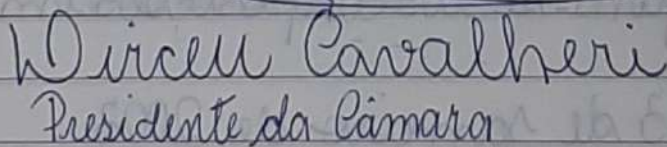 Dirceu Cavalheri
Presidente da Câmara